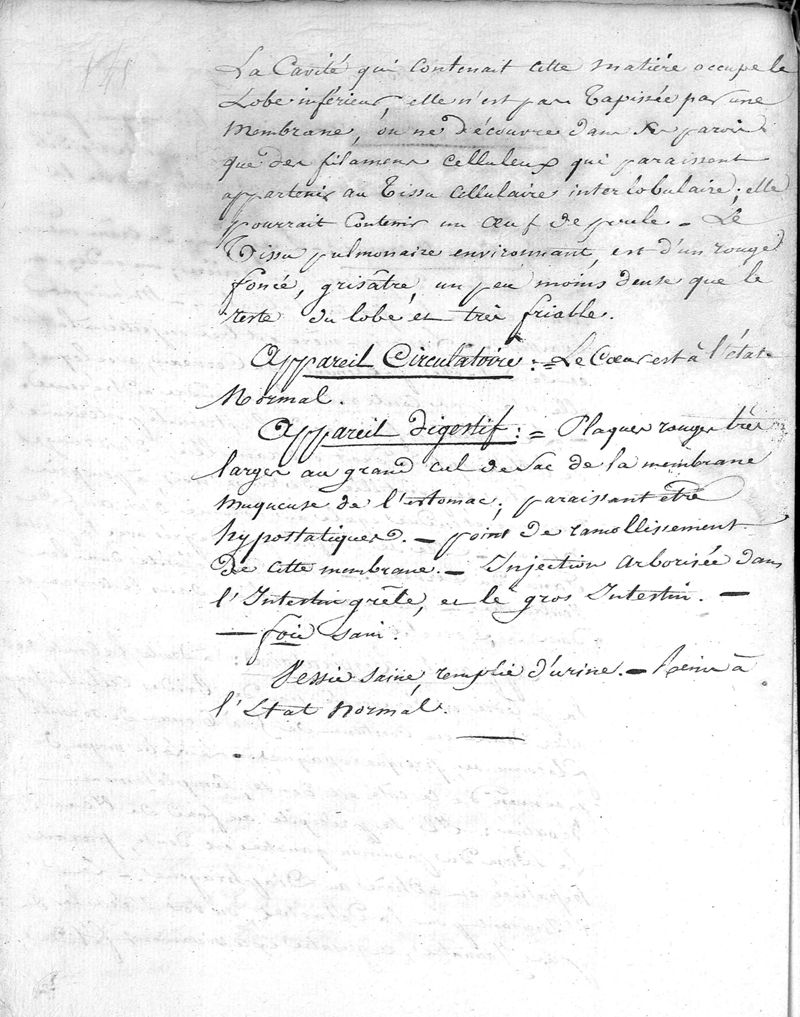 La Cavité qui contenait cette matière occupe le
Lobe inférieur, elle n'est pas tapissée par une
Membrane, on ne découvre dans ses parois
que des filamens celluleux qui paraissent
appartenir au tissu cellulaire interlobulaire; elle
pourrait contenir un œuf de poule. – Le
tissu pulmonaire environnant, est d'un rouge
foncé, grisâtre, un peu moins dense que le
reste du lobe et très friable.
Appareil Circulatoire := Le Cœur est à l'état
Normal.
Appareil digestif := Plaques rouges très
larges au grand cul de sac de la membrane
muqueuse de l'estomac, paraissant être
hypostatiques. – point de ramollissement
de cette membrane. – Injection arborisée dans
l'Intestin grêle, et le gros Intestin. –
– foie sain.
Vessie saine, remplie d'urine. – Reins à
l'Etat Normal.